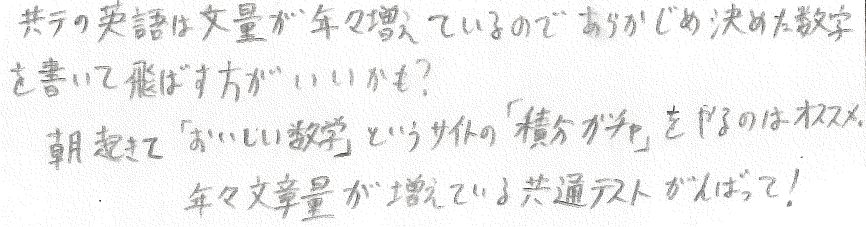 共テの英語は文量が年々増えているのであらかじめ決めた数字
を書いて飛ばす方がいいかも?
朝起きて「おいしい数学」というサイトの「積分ガチャ」をやるのはオススメ。
年々文章量が増えている共通テストがんばって!